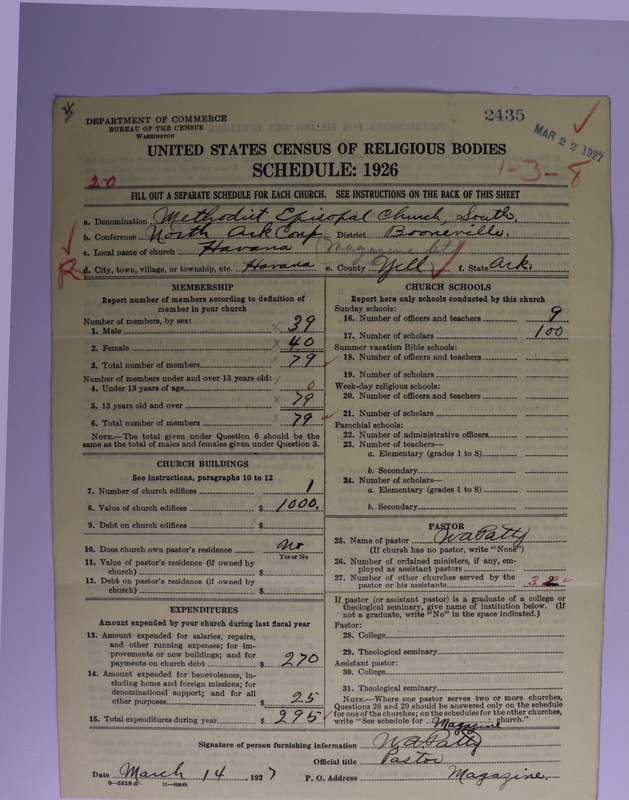 DEPARTMENT OF COMMERCE
BUREAU OF THE CENSUS
WASHINGTON
2435
MAR 23 1927
UNITED STATES CENSUS OF RELIGIOUS BODIES
SCHEDULE: 1926
1-3-8
20
FILL OUT A SEPARATE SCHEDULE FOR EACH CHURCH. SEE INSTRUCTIONS ON THE BACK OF THIS SHEET
a. Denomination Methodist Episcopal Church, South.
b. Conference North Ark Conf District Booneville.
c. Local name of church Havana (Magazine Ct)
R d. City, town, village, or township, etc. Havana e. County Yell f. State Ark.
MEMBERSHIP
Report number of members according to definition of member in your church
Number of members, by sex:
1. Male 39
2. Female 40
3. Total number of members 79
Number of members under and over 13 years old:
4. Under 13 years of age 0
5. 13 years old and over 79
6. Total number of members 79
NOTE.—The total given under Question 6 should be the same as the total of males and females given under Question 3.
CHURCH BUILDINGS
See instructions, paragraphs 10 to 12
7. Number of church edifices 1
8. Value of church edifices $ 1000.
9. Debt on church edifices $
10. Does church own pastor's residence No
Yes or No
11. Value of pastor's residence (if owned by church) $
12. Debt on pastor's residence (if owned by church) $
EXPENDITURES
Amount expended by your church during last fiscal year
13. Amount expended for salaries, repairs, and other running expenses; for improvements or new buildings; and for payments on church debt $ 270
14. Amount expended for benevolences, including home and foreign missions; for denominational support; and for all other purposes $ 25
15. Total expenditures during year $ 295
CHURCH SCHOOLS
Report here only schools conducted by this church
Sunday schools:
16. Number of officers and teachers 9
17. Number of scholars 100
Summer vacation Bible schools:
18. Number of officers and teachers
19. Number of scholars
Week-day religious schools:
20. Number of officers and teachers
21. Number of scholars
Parochial schools:
22. Number of administrative officers
23. Number of teachers—
a. Elementary (grades 1 to 8)
b. Secondary
24. Number of scholars—
a. Elementary (grades 1 to 8)
b. Secondary
PASTOR
25. Name of pastor W A Patty
(If church has no pastor, write "None")
26. Number of ordained ministers, if any, employed as assistant pastors
27. Number of other churches served by the pastor or his assistants 3
If pastor (or assistant pastor) is a graduate of a college or theological seminary, give name of institution below. (If not a graduate, write "No" in the space indicated.)
Pastor:
28. College
29. Theological seminary
Assistant pastor:
30. College
31. Theological seminary
NOTE.—Where one pastor serves two or more churches, Questions 28 and 29 should be answered only on the schedule for one of the churches; on the schedules for the other churches, write "See schedule for Magazine church."
Signature of person furnishing information W. A. Patty
Official title Pastor
Date March 14, 1927 P. O. Address Magazine.